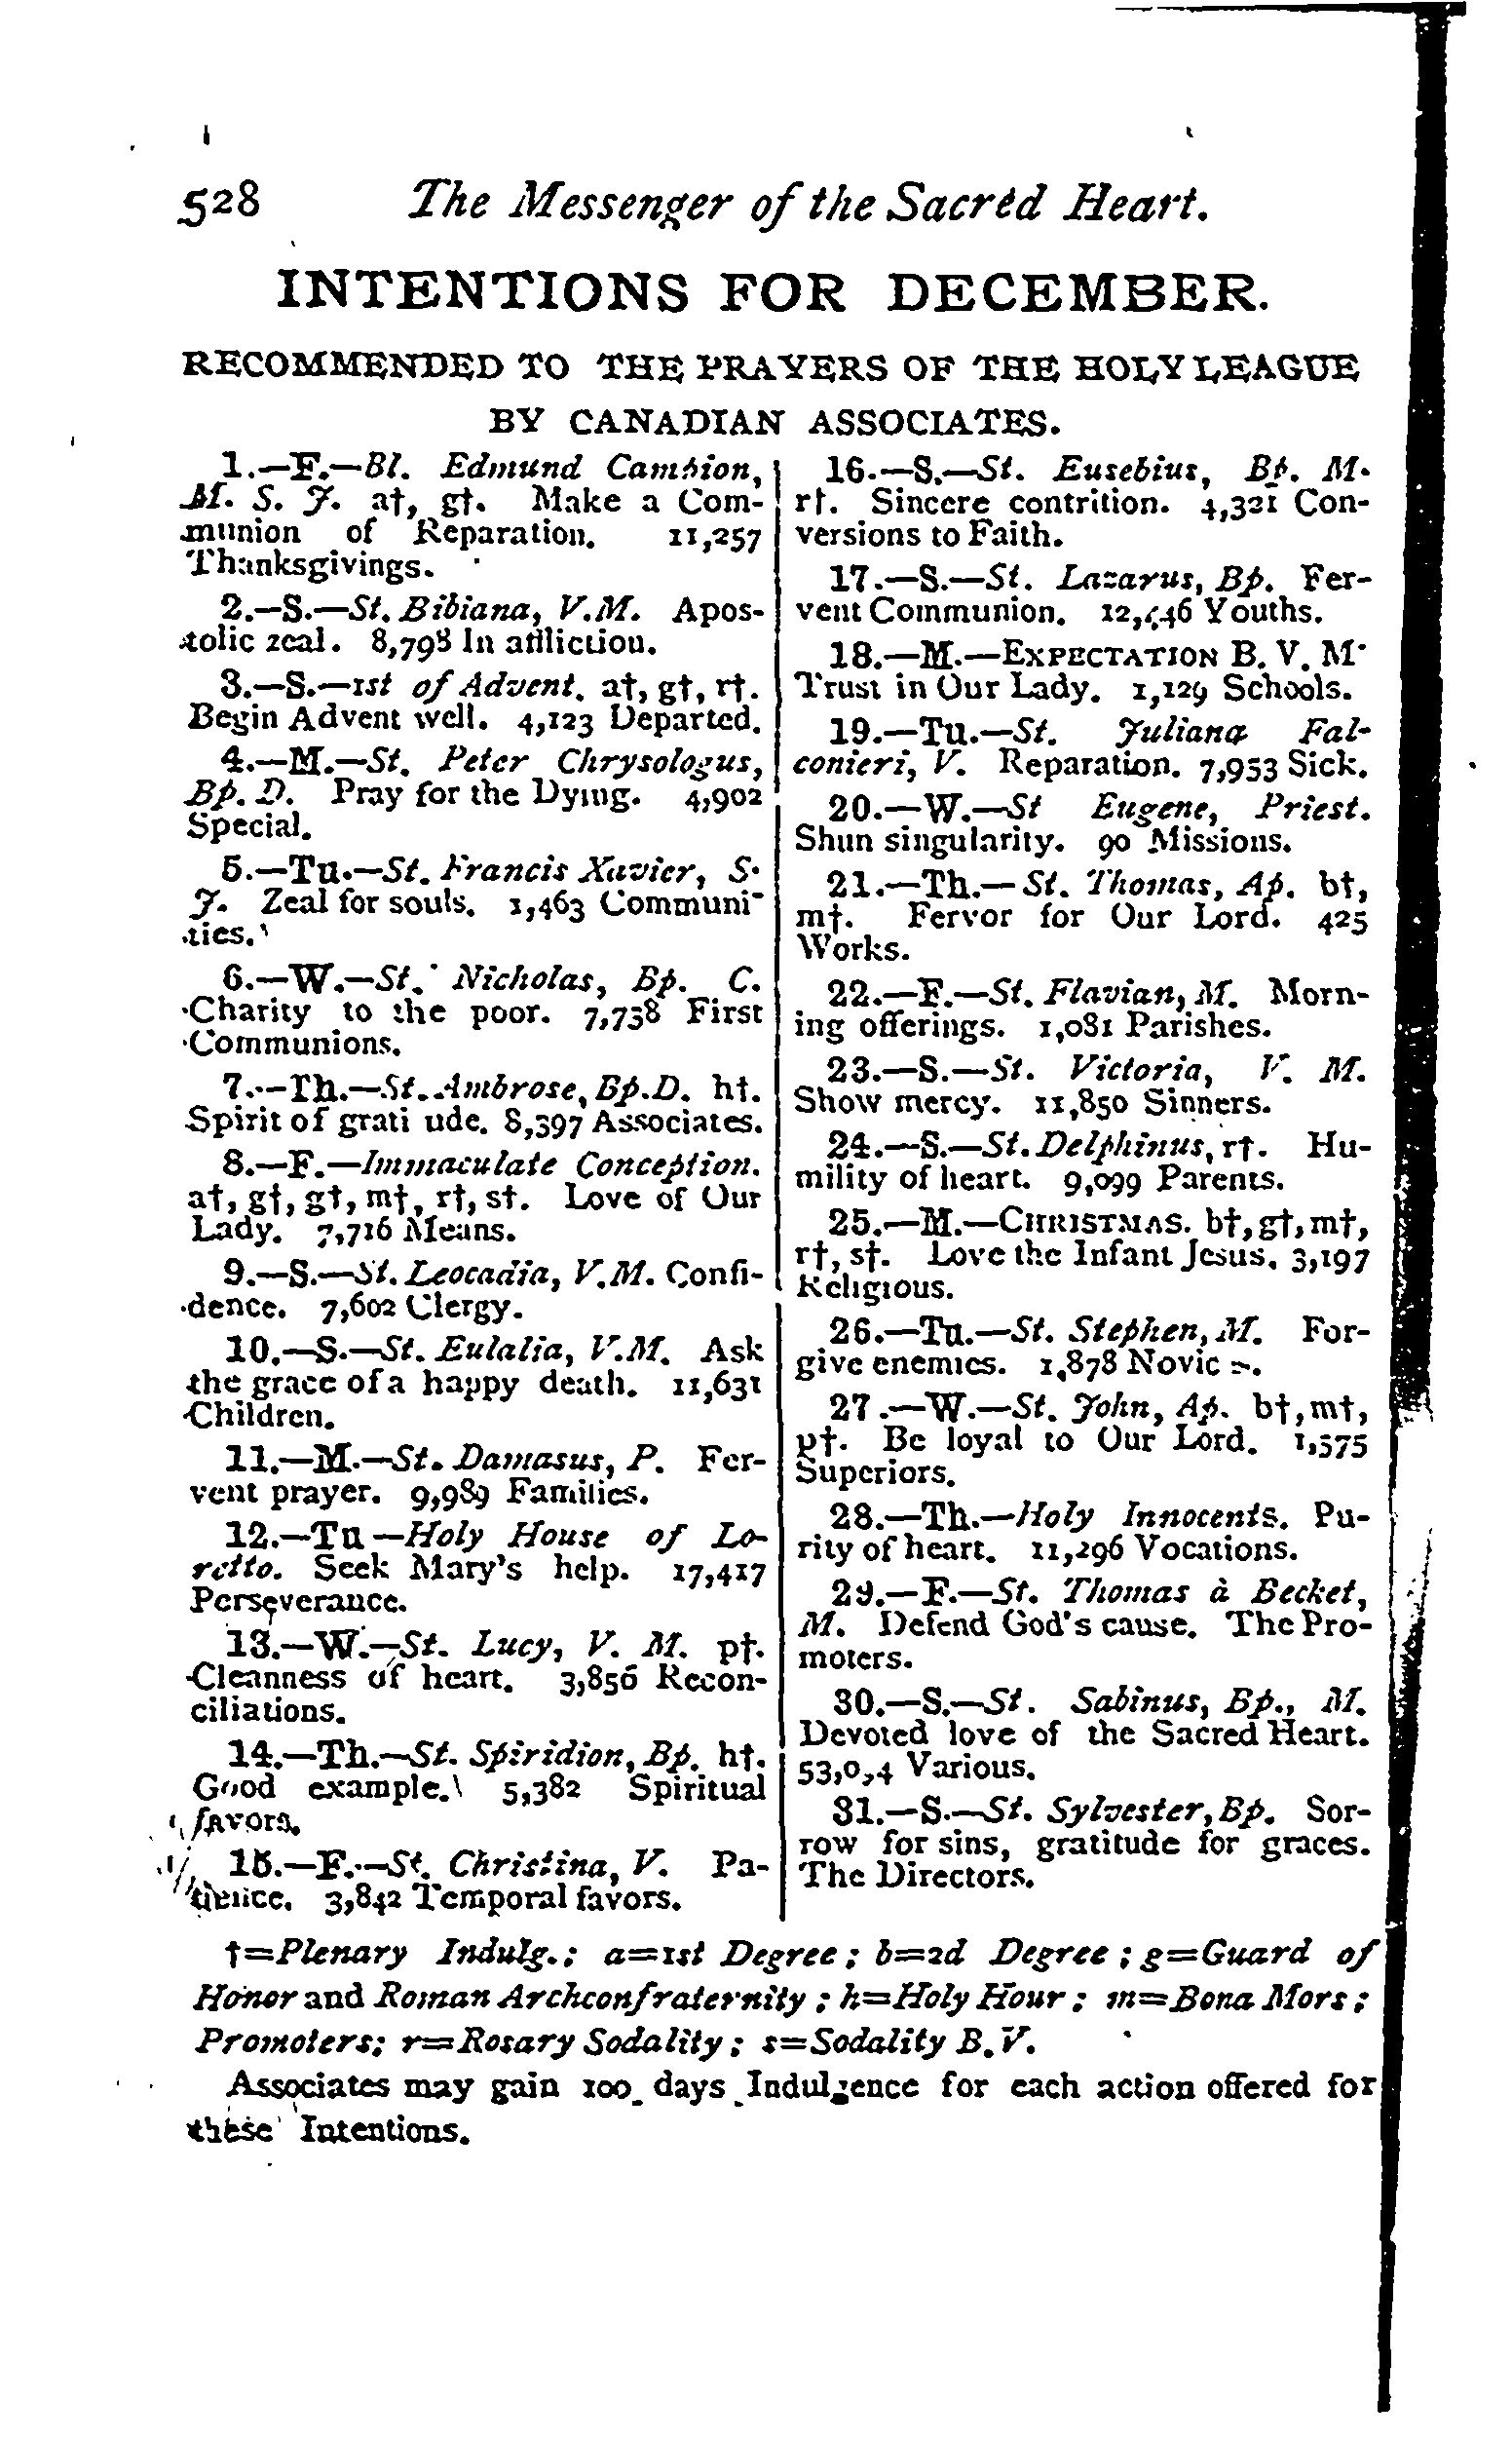 528 The Messenger of the Sacred Heart.
INTENTIONS FOR DECEMBER.
RECOMMENDED TO THE PRAYERS OF THE HOLY LEAGUE
BY CANADIAN ASSOCIATES.
1.—F.—Bl. Edmund Campion,
M. S. J. a†, g†. Make a Com-
munion of Reparation. 11,257
Thanksgivings.
2.—S.—St. Bibiana, V.M. Apos-
tolic zeal. 8,798 In affliction.
3.—S.—1st of Advent. a†, g†, r†.
Begin Advent well. 4,123 Departed.
4.—M.—St. Peter Chrysologus,
Bp. D. Pray for the Dying. 4,902
Special.
5.—Tu.—St. Francis Xavier, S.
J. Zeal for souls. 1,463 Communi-
ties.
6.—W.—St. Nicholas, Bp. C.
Charity to the poor. 7,738 First
Communions.
7.—Th.—St. Ambrose, Bp.D. h†.
Spirit of grati ude. 8,397 Associates.
8.—F.—Immaculate Conception.
a†, g†, g†, m†, r†, s†. Love of Our
Lady. 7,716 Means.
9.—S.—St. Leocadia, V.M. Confi-
dence. 7,602 Clergy.
10.—S.—St. Eulalia, V.M. Ask
the grace of a happy death. 11,631
Children.
11.—M.—St. Damasus, P. Fer-
vent prayer. 9,989 Families.
12.—Tu—Holy House of Lo-
retto. Seek Mary's help. 17,417
Perseverance.
13.—W.—St. Lucy, V. M. p†.
Cleanness of heart. 3,856 Recon-
ciliations.
14.—Th.—St. Spiridion, Bp. h†.
Good example. 5,382 Spiritual
favors.
15.—F.—St. Christina, V. Pa-
tience. 3,842 Temporal favors.
16.—S.—St. Eusebius, Bp. M.
r†. Sincere contrition. 4,321 Con-
versions to Faith.
17.—S.—St. Lazarus, Bp. Fer-
vent Communion. Youths.
18.—M.—EXPECTATION B. V. M.
Trust in Our Lady. 1,129 Schools.
19.—Tu.—St. Juliana Fal-
conieri, V. Reparation. 7,953 Sick.
20.—W.—St Eugene, Priest.
Shun singularity. 90 Missions.
21.—Th.—St. Thomas, Ap. b†,
m†. Fervor for Our Lord. 425
Works.
22.—F.—St. Flavian, M. Morn-
ing offerings. 1,081 Parishes.
23.—S.—St. Victoria, V. M.
Show mercy. 11,850 Sinners.
24.—S.—St. Delphinus, r†. Hu-
mility of heart. 9,099 Parents.
25.—M.—CHRISTMAS. b†, g†, m†,
r†, s†. Love the Infant Jesus. 3,197
Religious.
26.—Tu.—St. Stephen, M. For-
give enemies. 1,878
27.—W.—St. John, Ap. b†, m†,
p†. Be loyal to Our Lord. 1,575
Superiors.
28.—Th.—Holy Innocents. Pu-
rity of heart. 11,296 Vocations.
29.—F.—St. Thomas à Becket,
M. Defend God's cause. The Pro-
moters.
30.—S.—St. Sabinus, Bp., M.
Devoted love of the Sacred Heart.
Various.
31.—S.—St. Sylvester, Bp. Sor-
row for sins, gratitude for graces.
The Directors.
†=Plenary Indulg.; a=1st Degree; b=2d Degree; g=Guard of
Honor and Roman Archconfraternity; h=Holy Hour; m=Bona Mors;
Promoters; r=Rosary Sodality; s=Sodality B.V.
Associates may gain 100 days Indulgence for each action offered for
these Intentions.